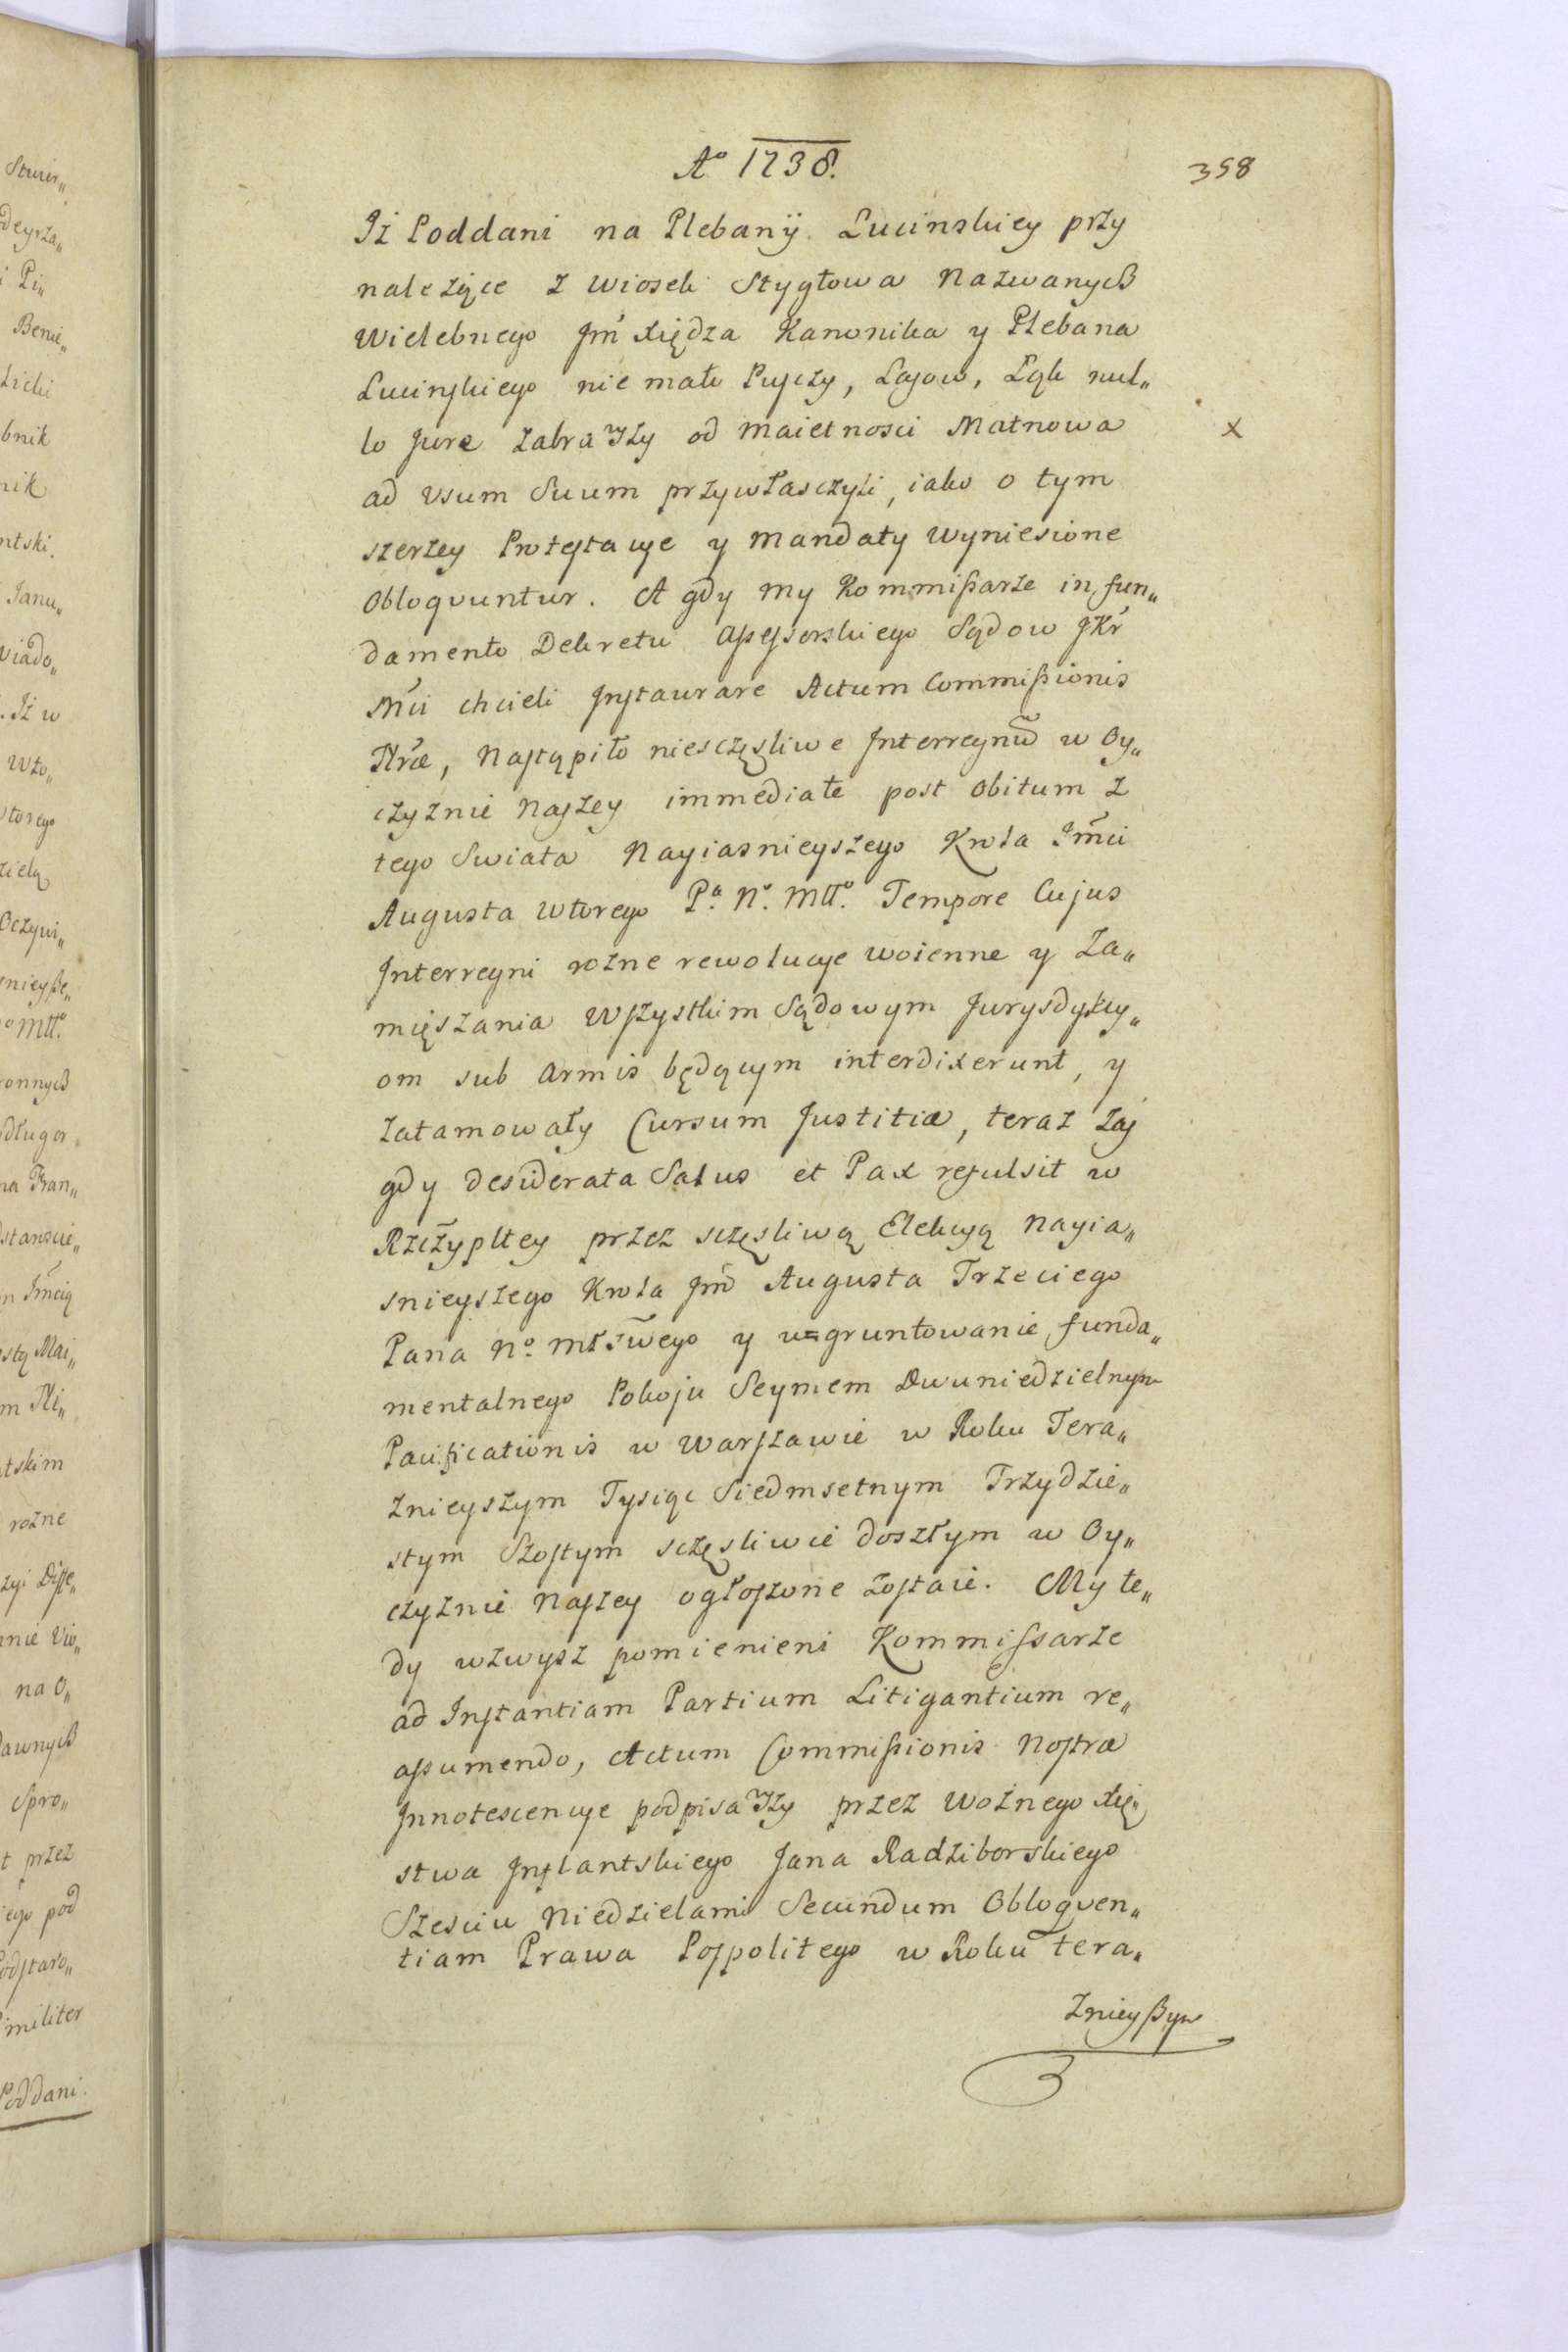 Aº 1738.
358
Iż Poddani na Plebanÿ Lucinskiey przy
należące z wiosek Stygłowa Nazwanych
Wielebnego Jm̃ Xiędza Kanonika y Plebana
Lucinskiego nie mało Pusczy, Lasow, Łąk nul„
lo Jure zabrawszy od maietnosci Matnowa
x
ad usum Suum przywłasczyli, iako o tym
szerzey Protestacye y Mandaty wyniesione
Obloquuntur. A gdy my Kommißarze in fun„
damento Dekretu assessorskiego Sądow JKr̃
Mc̃i chcieli Instaurare Actum Commißionis
Nr̃æ, Nastąpiło niesczęsliwe Interregnum̃ w Oy„
czyznie Naszey immediate post Obitum z
tego Swiata Nayiasnieyszego Krola Jm̃ci
Augusta wtorego Pª. Nº. Mttº. Tempore Cujus
Interregni rożne rewolucye woienne y Za„
mięszania Wszystkim Sądowym Jurysdykcy„
om sub armis będącym interdixerunt, y
zatamowały Cursum Justitiæ, teraz zas
gdy desiderata Salus et Pax refulsit w
Rzcz̃ypltey przez sczęsliwą Elekcyą Nayia„
snieyszego Krola Jm̃ Augusta Trzeciego
Pana Nº. Młs̃wego y ugruntowanie funda„
mentalnego Pokoju Seymem Dwuniedzielnym
Pacificationis w Warszawie w Roku Tera„
znieyszym Tysiąc Siedmsetnym Trzydzie„
stym Szostym sczęsliwie doszłym w Oy„
czyznie Naszey ogłoszone zostaie. My te„
dy wzwysz pomienieni Kommissarze
ad Instantiam Partium Litigantium re„
assumendo, Actum Commißionis Nostræ
Innotescencye podpisawszy przez Woznego Xię„
stwa Inflantskiego Jana Radziborskiego
Szesciu Niedzielami Secundum Obloquen„
tiam Prawa Pospolitego w Roku tera„
znieyßym